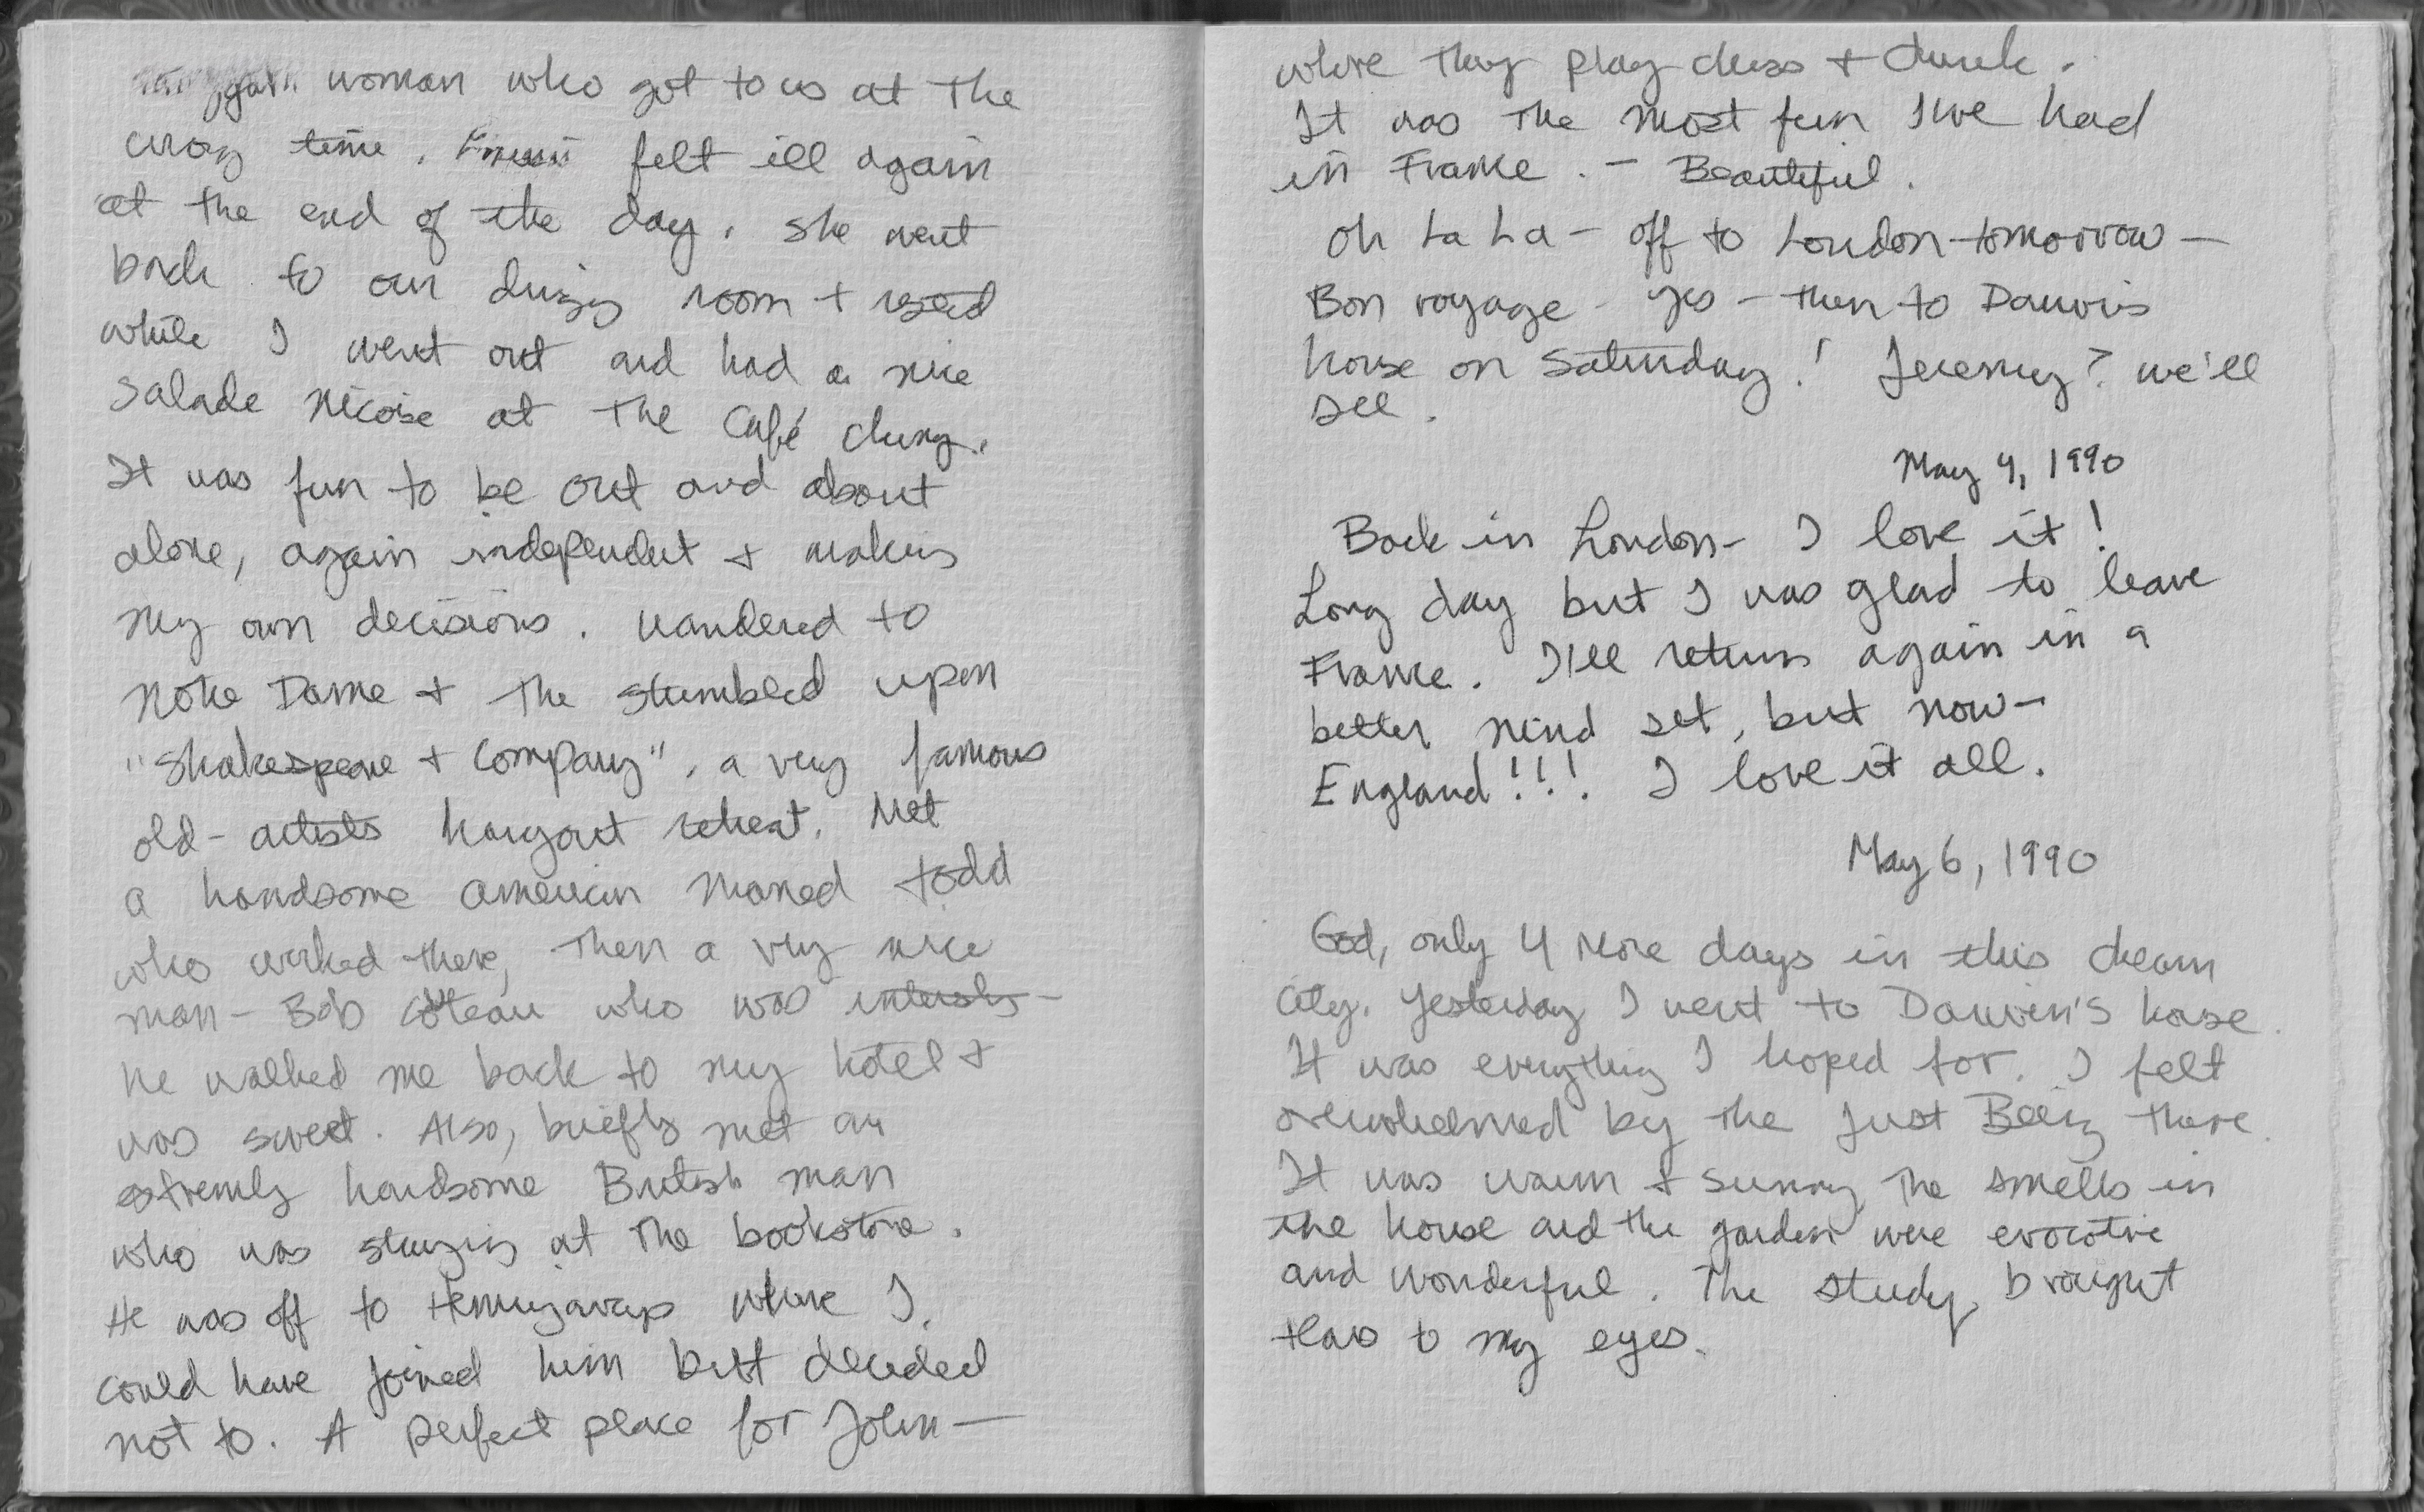 woman who got to us at the
wrong time. felt ill again
at the end of the day. She went
back to our dingy room + rested
while I went out and had a nice
Salade Nicoise at the Café Cluny.
It was fun to be out and about
alone, again independent + making
my own decisions. Wandered to
Notre Dame + the stumbled upon
"Shakespeare + Company", a very famous
old-artists hangout retreat. Met
a handsome American named Todd
who worked there, Then a very nice
man - Bob who was
He walked me back to my hotel +
was sweet. Also, briefly met an
extremely handsome British man
who was staying at the bookstore.
He was off to Hemingways where I
could have joined him but decided
not to. A perfect place for John—
where they play chess + drink.
It was the most fun I've had
in France. - Beautiful.
Oh La La - off to London tomorrow -
Bon voyage - yes - then to Darwins
house on Saturday! Jeremy? We'll
see.
May 4, 1990
Back in London - I love it!
Long day but I was glad to leave
France. I'll return again in a
better mind set, but now -
England!!! I love it all.
May 6, 1990
God, only 4 more days in this dream
city. Yesterday I went to Darwin's house.
It was everything I hoped for. I felt
overwhelmed by the just Being there.
It was warm + sunny, The smells in
the house and the garden were evocative
and wonderful. The study brought
tears to my eyes.